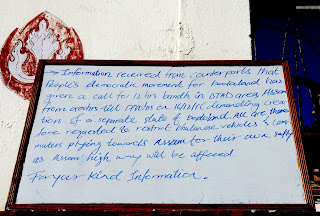 → Information received from counterparts that
People's democratic movement for Bodoland has
given a call for 12 hrs bandh in BTAD areas, Assam
from 0500hrs till 1700hrs on 16/12/15 demanding crea-
tion of a separate state of Bodoland. All are there-
fore requested to restrict Bhutanese vehicles & com-
muters plying towards Assam for their own safty
as Assam high way will be affected.
For your kind Information.